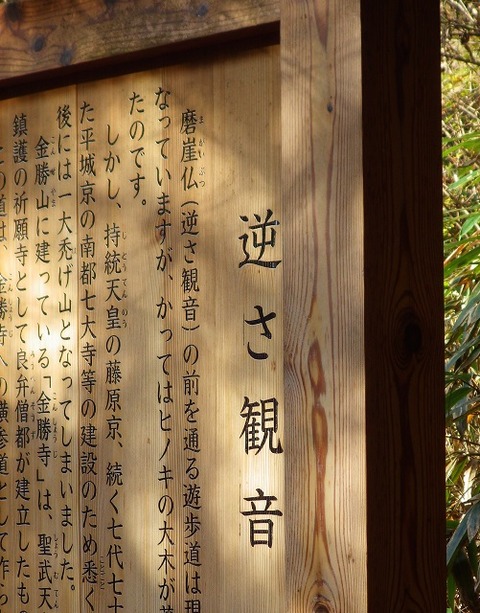 逆さ観音
磨崖仏(逆さ観音)の前を通る遊歩道は現
なっていますが、かつてはヒノキの大木が
たのです。
しかし、持統天皇の藤原京、続く七代七十
た平城京の南都七大寺等の建設のため悉く
後には一大禿げ山となってしまいました。
金勝山に建っている「金勝寺」は、聖武天
鎮護の祈願寺として良弁僧都が建立したもの
の道は、金勝寺への横参道として作ら